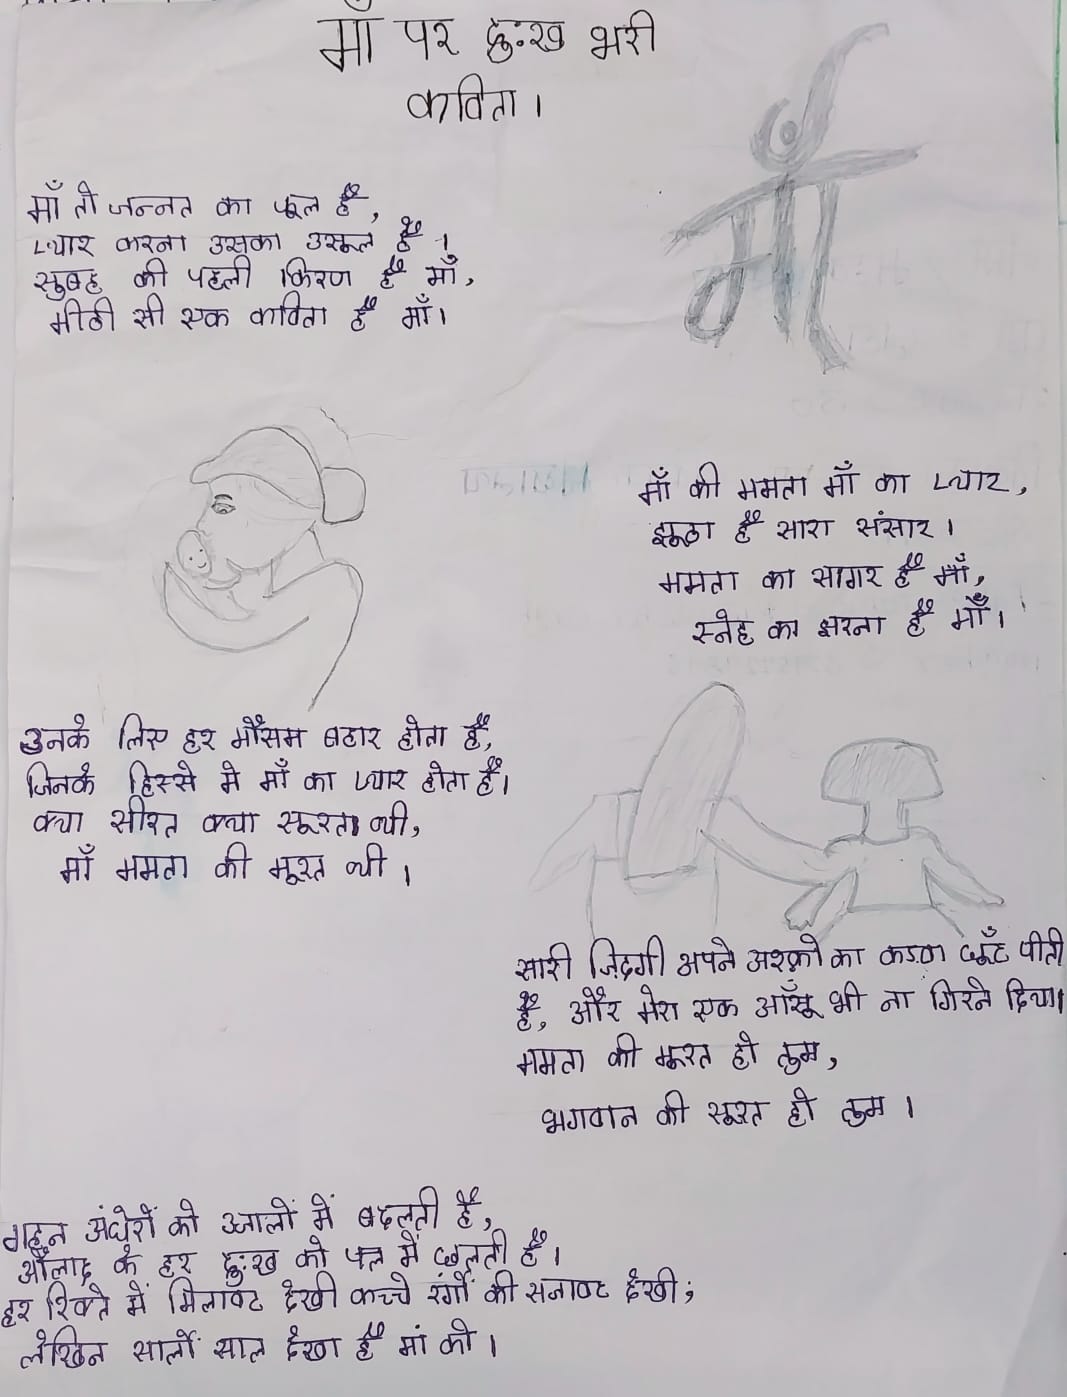 माँ पर दुःख भरी
कविता।
माँ
माँ तो जन्नत का फूल है,
प्यार करना उसका उसूल है।
सुबह की पहली किरण है माँ,
मीठी सी एक कविता है माँ।
माँ की ममता माँ का प्यार,
झूठा है सारा संसार।
ममता का सागर है माँ,
स्नेह का झरना है माँ।
उनके लिए हर मौसम बहार होता है,
जिनके हिस्से मे माँ का प्यार होता है।
क्या सीरत क्या सूरत थी,
माँ ममता की मूरत थी।
सारी ज़िंदगी अपने अश्क़ो का कड़वा घूँट पीती
है, और मेरा एक आँसू भी ना गिरने दिया।
ममता की मूरत हो तुम,
भगवान की सूरत हो तुम।
गहन अंधेरों को उजालों में बदलती है,
औलाद के हर दुःख को पल में छलती है।
हर रिश्ते में मिलावट देखी कच्चे रंगों की सजावट देखी;
लेकिन सालों साल देखा है मां को।